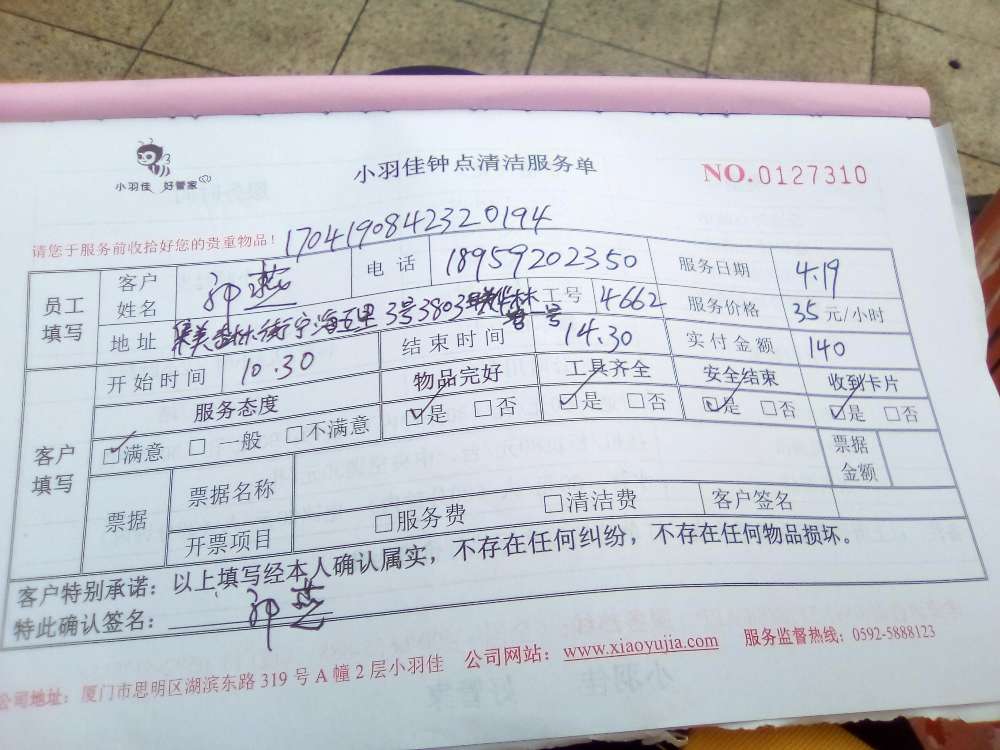 小羽佳 好管家
小羽佳钟点清洁服务单
NO.0127310
请您于服务前收拾好您的贵重物品！
17041908423220194
员工填写 客户姓名 电话 18959202350 服务日期 4.19
地址 3号3803 工号 4662 服务价格 35 元/小时
开始时间 10.30 结束时间 14.30 实付金额 140
客户填写 服务态度 物品完好 工具齐全 安全结束 收到卡片
☑满意 □一般 □不满意 ☑是 □否 ☑是 □否 ☑是 □否 ☑是 □否
票据 票据名称 票据金额
开票项目 □服务费 □清洁费 客户签名
客户特别承诺：以上填写经本人确认属实，不存在任何纠纷，不存在任何物品损坏。
特此确认签名：
公司地址：厦门市思明区湖滨东路 319 号 A 幢 2 层小羽佳 公司网站：www.xiaoyujia.com 服务监督热线：0592-5888123